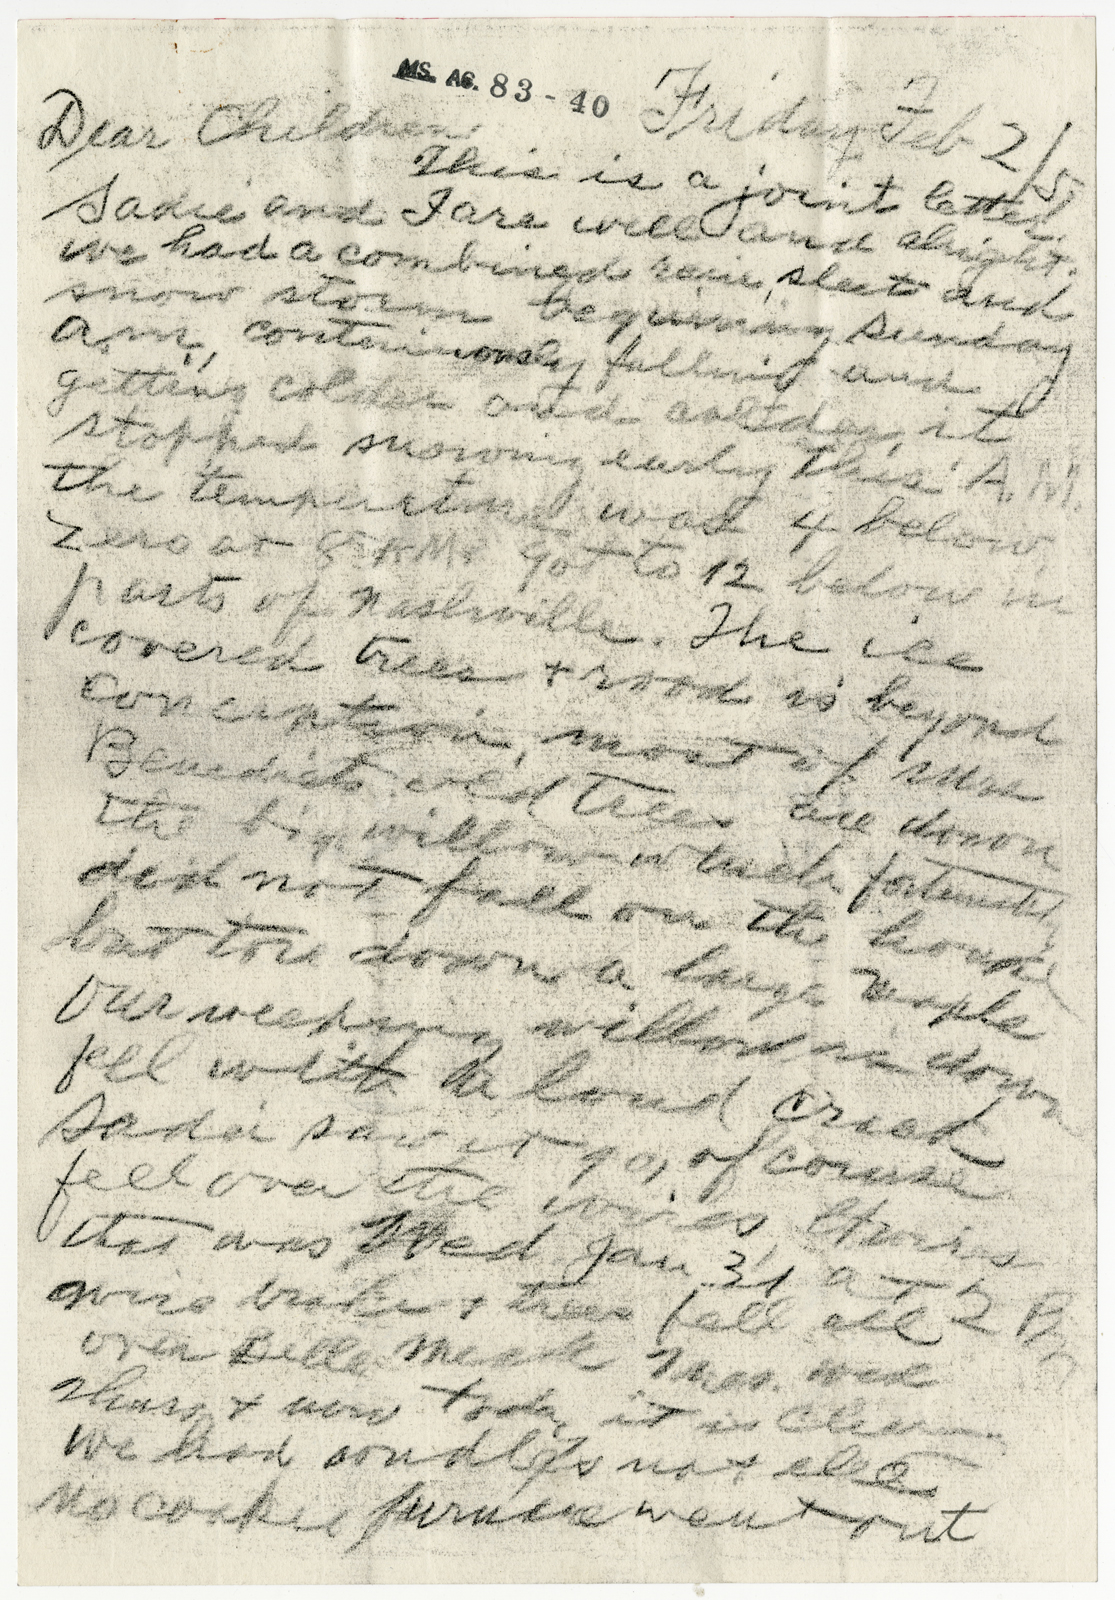 MS. AC. 83-40
Friday Feb 2/5
Dear Children
This is a joint letter,
Sadie and I are well and alright.
we had a combined rain, sleet and
snow storm beginning Sunday
a.m., continuously falling and
getting colder and colder, it
stopped snowing early this A.M.
the temperture was 4 below
zero at 8 AM. got to 12 below in
parts of Nashville. The ice
covered trees + road is beyond
conception, most of
Benedicts old trees are down
the big willow which fortunately
did not fall on the house
but tore down a large maple
Our weeping willow is down
fell with a loud crack
Sadie saw it go, of course
fell over the wires
that was Wed Jan 31 at 2 P.M.
wire broke + trees fell all
over Belle Meade Tues. wed
Thurs, + now today it is clear.
We had no elec
no cookie furnace went out